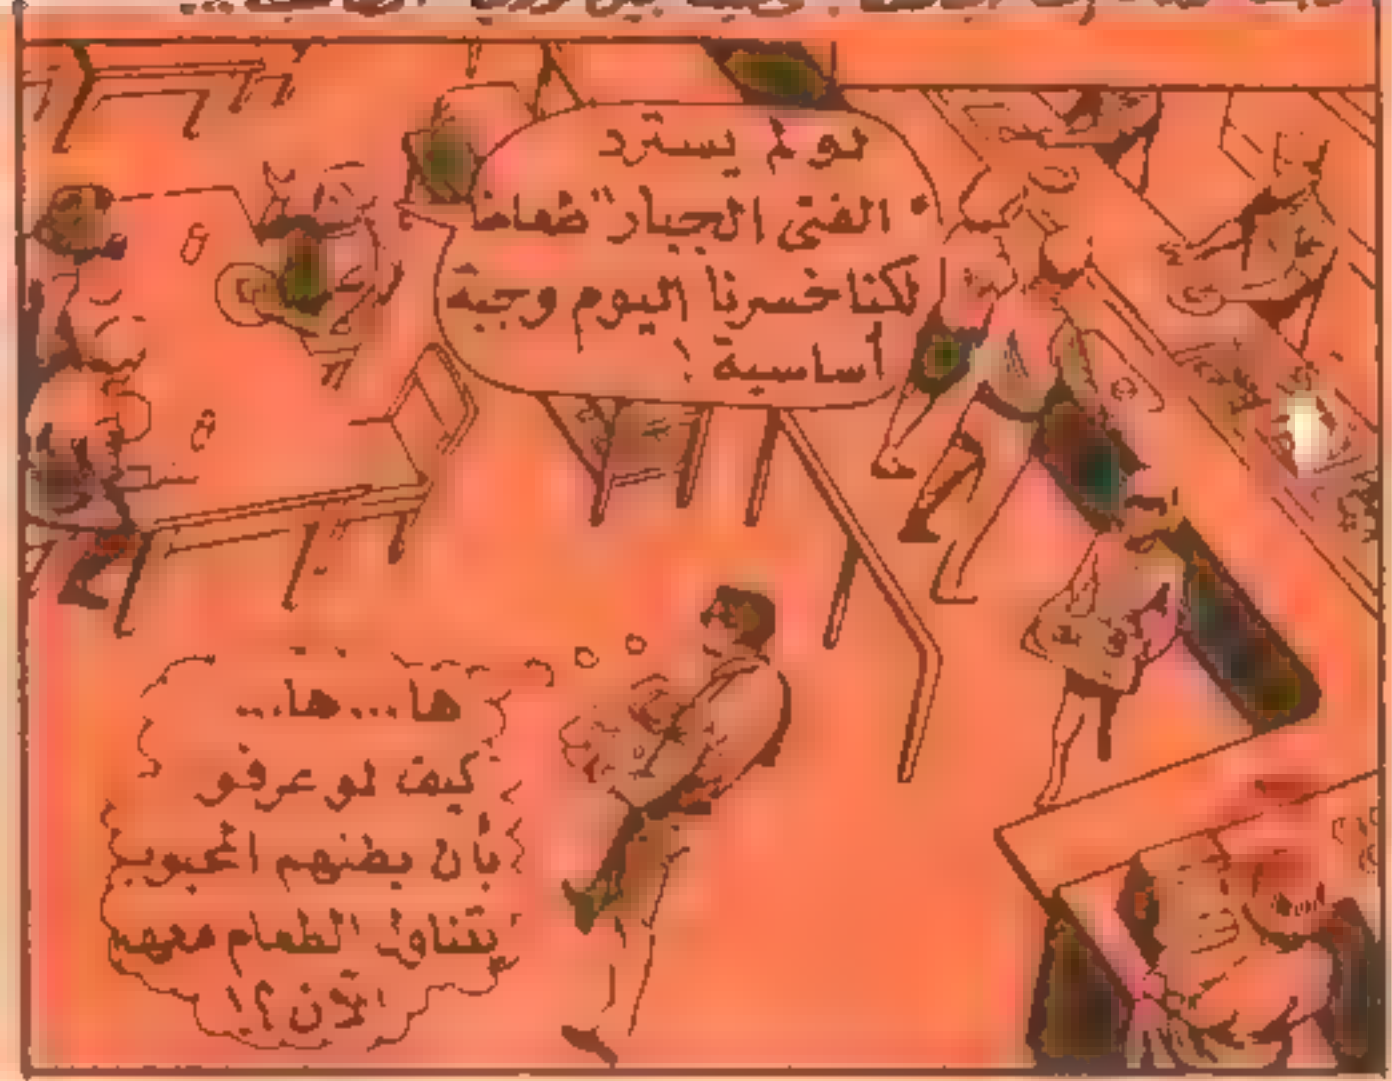 لو لم يسترد
الفتى الجبار" طعامنا
لكنا خسرنا اليوم وجبة
أساسية !
ها...ها...
كيف لو عرفو
بأن بطلهم المحبوب
يتناول الطعام معهم
الآن ؟!